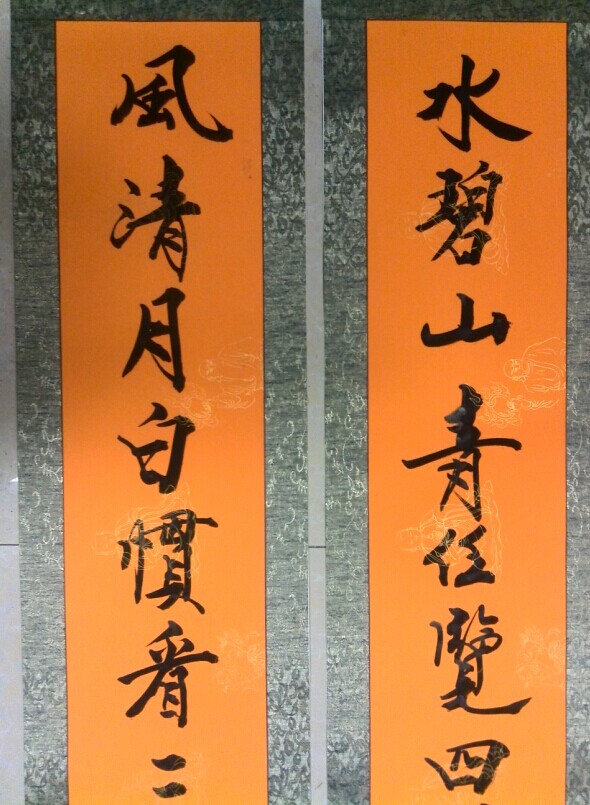 水碧山青任覽四
風清月白慣看二